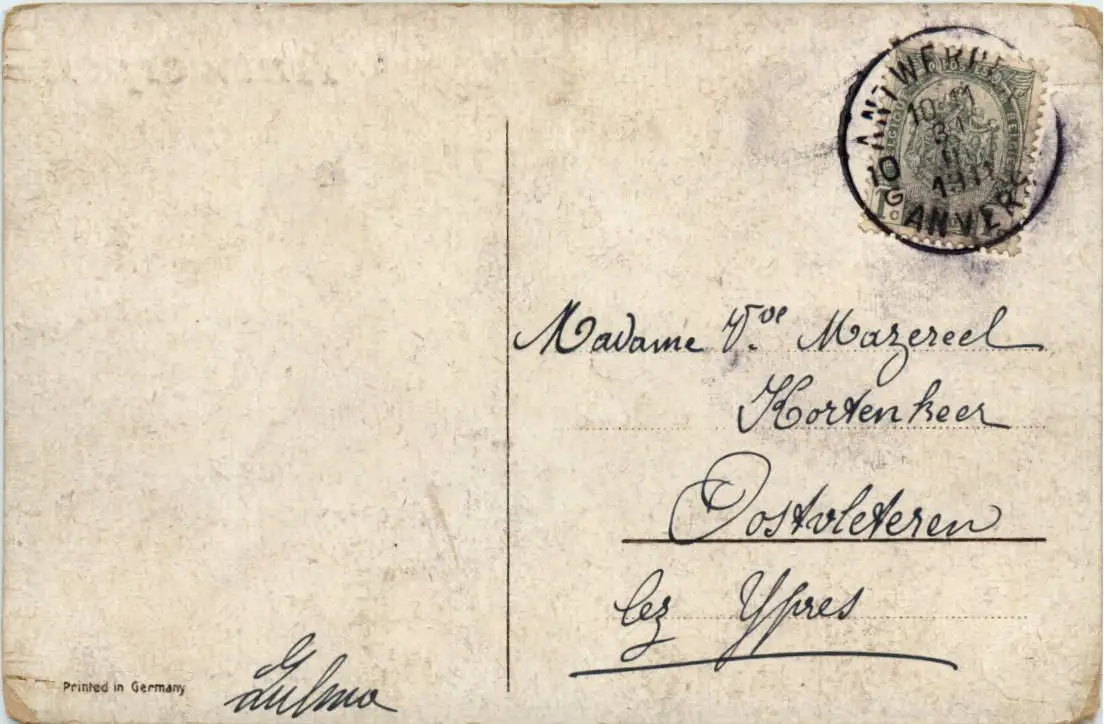 ANTWERPEN
10-11
31
1911
10 G ANVERS
BELGIQUE
1c
Madame Vve Mazereel
Kortenkeer
Oostvleteren
lez Ypres
Printed in Germany